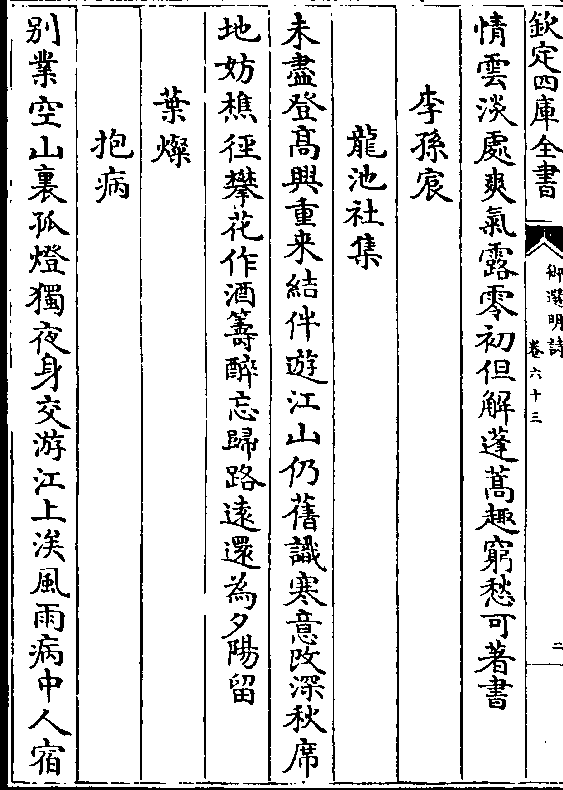 欽定四庫全書
御選明詩
卷六十三
二
情雲淡處爽氣露零初但解蓬蒿趣窮愁可著書
李孫宸
龍池社集
未盡登高興重来結伴遊江山仍舊識寒意改深秋席
地妨樵徑攀花作酒籌醉忘歸路逺還為夕陽留
葉燦
抱病
别業空山裏孤燈獨夜身交游江上淚風雨病中人宿